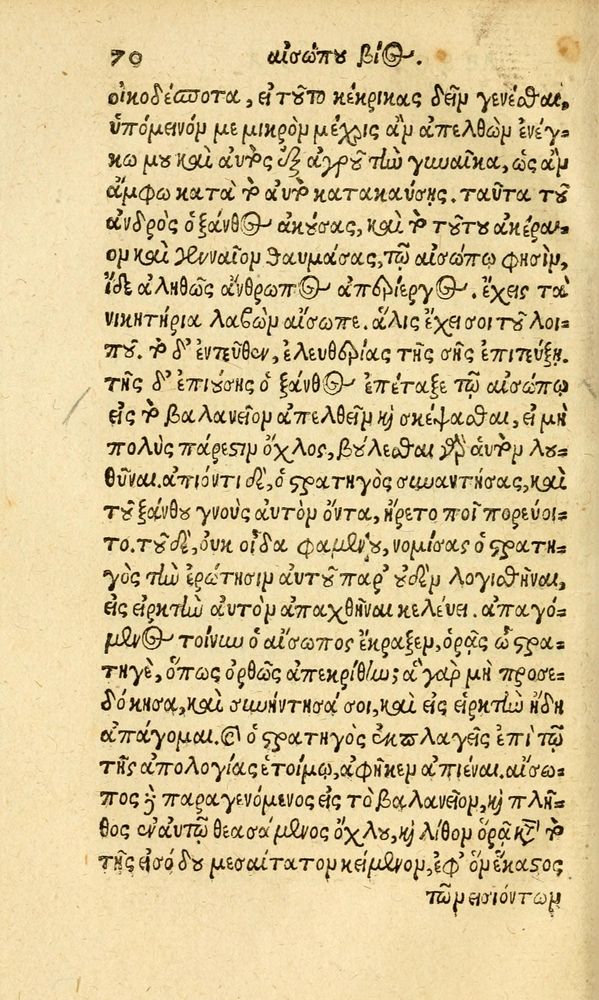 70 αἰσώπου βίος.
οἰκοδέσποτα, εἰ τοῦτο κέκρικας δεῖν γενέσθαι,
ὑπόμεινόν με μικρὸν μέχρις ἂν ἀπελθὼν ἐνέγ-
κω μου καὶ αὐτὸς ἐξ ἀγροῦ τὴν γυναῖκα, ὡς ἂν
ἄμφω κατὰ τὸ αὐτὸ κατακαύσῃς. ταῦτα τοῦ
ἀνδρὸς ὁ ξάνθος ἀκούσας, καὶ τὸ τούτου ἀκέραι-
ον καὶ γενναῖον θαυμάσας, τῷ αἰσώπῳ φησὶν,
ἴδε ἀληθῶς ἄνθρωπος ἀπερίεργος. ἔχεις τὰ
νικητήρια λαβὼν αἴσωπε. ἅλις ἔχει σοι τοῦ λοι-
ποῦ. τὸ δ' ἐντεῦθεν, ἐλευθερίας τῆς σῆς ἐπιτεύξῃ.
τῆς δ' ἐπιούσης ὁ ξάνθος ἐπέταξε τῷ αἰσώπῳ
εἰς τὸ βαλανεῖον ἀπελθεῖν καὶ σκέψασθαι, εἰ μὴ
πολὺς πάρεστιν ὄχλος, βούλεσθαι γὰρ αὐτὸν λου-
θῆναι. ἀπιόντι δὲ, ὁ στρατηγὸς συναντήσας, καὶ
τοῦ ξάνθου γνοὺς αὐτὸν ὄντα, ἤρετο ποῖ πορεύοι-
το. τοῦ δὲ, οὐκ οἶδα φαμένου, νομίσας ὁ στρατη-
γὸς τὴν ἐρώτησιν αὐτοῦ παρ' οὐδὲν λογισθῆναι,
εἰς εἱρκτὴν αὐτὸν ἀπαχθῆναι κελεύει. ἀπαγό-
μενος τοίνυν ὁ αἴσωπος ἔκραξεν, ὁρᾷς ὦ στρα-
τηγὲ, ὅπως ὀρθῶς ἀπεκρίθην; ἃ γὰρ μὴ προσε-
δόκησα, καὶ συνήντησά σοι, καὶ εἰς εἱρκτὴν ἤδη
ἀπάγομαι. καὶ ὁ στρατηγὸς ἐκπλαγεὶς ἐπὶ τῷ
τῆς ἀπολογίας ἑτοίμῳ, ἀφῆκεν ἀπιέναι. αἴσω-
πος δὲ παραγενόμενος εἰς τὸ βαλανεῖον, καὶ πλῆ-
θος ἐν αὐτῷ θεασάμενος ὄχλου, καὶ λίθον ὁρᾷ κατὰ τὸ
τῆς εἰσόδου μεσαίτατον κείμενον, ἐφ' ὃν ἕκαστος
τῶν εἰσιόντων